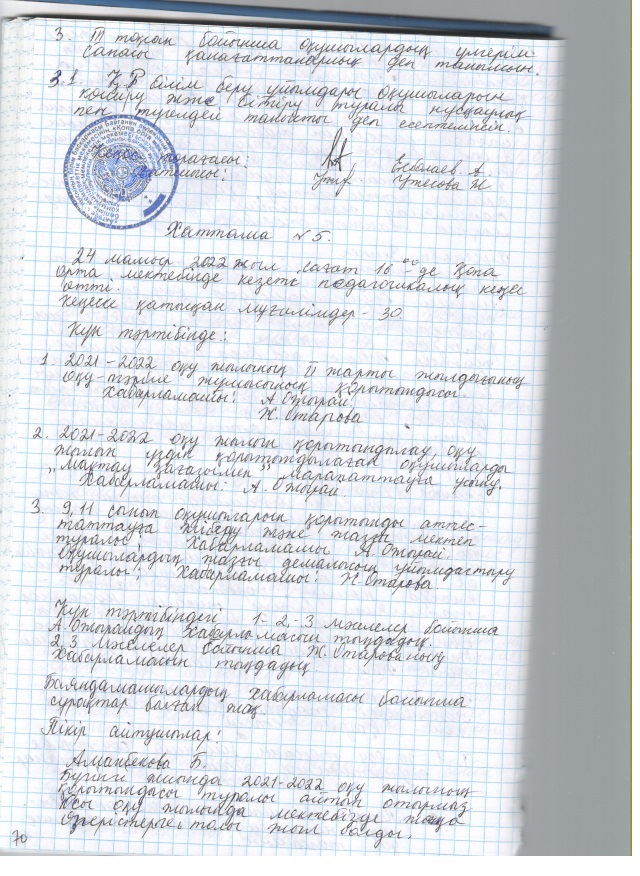 3. III тоқсан бойынша оқушылардың үлгерім
сапасы қанағаттанарлық деп танылсын.
3.1 ҚР білім беру ұйымдары оқушыларын
көшіру және бітіру туралы нұсқаулық
пен түгелдей танысты деп есептелінсін.
Кеңес төрағасы: Есболаев А.
Хатшысы: Утесова Н
Хаттама №5.
24 мамыр 2022 жыл сағат 16 ºº-де Қопа
орта мектебінде кезекті педагогикалық кеңес
өтті.
Кеңеске қатысқан мұғалімдер - 30.
Күн тәртібінде:
1. 2021-2022 оқу жылының II жарты жылдығының
Оқу-тәрбие жұмысының қорытындысы
Хабарламашы: А Отырай
Ж.Отарова
2. 2021-2022 оқу жылын қорытындылау, оқу
жылын үздік қорытындылаған оқушыларды
"Мақтау қағазымен" марапаттауға ұсыну.
Хабарламашы: А. Отырай
3. 9,11 сынып оқушыларын қорытынды аттес-
таттауға жіберу және жазғы мектеп
туралы Хабарламашы А.Отырай
Оқушылардың жазғы демалысын ұйымдастыру
туралы; Хабарламашы: Ж.Отарова
Күн тәртібіндегі 1-2,-3 мәселелер бойынша
А.Отырайдың хабарламасын тыңдадық.
2,3 мәселелер бойынша Ж.Отарованың
хабарламасын тыңдадық
Баяндамашылардың хабарламасы бойынша
сұрақтар болған жоқ
Пікір айтушылар:
Аманбекова Б.
Бүгінгі жиында 2021-2022 оқу жылының
қорытындысы туралы айтып отырмыз
Осы оқу жылында мектебімізде жаңа
өзгерістерге толы жыл болды.
70